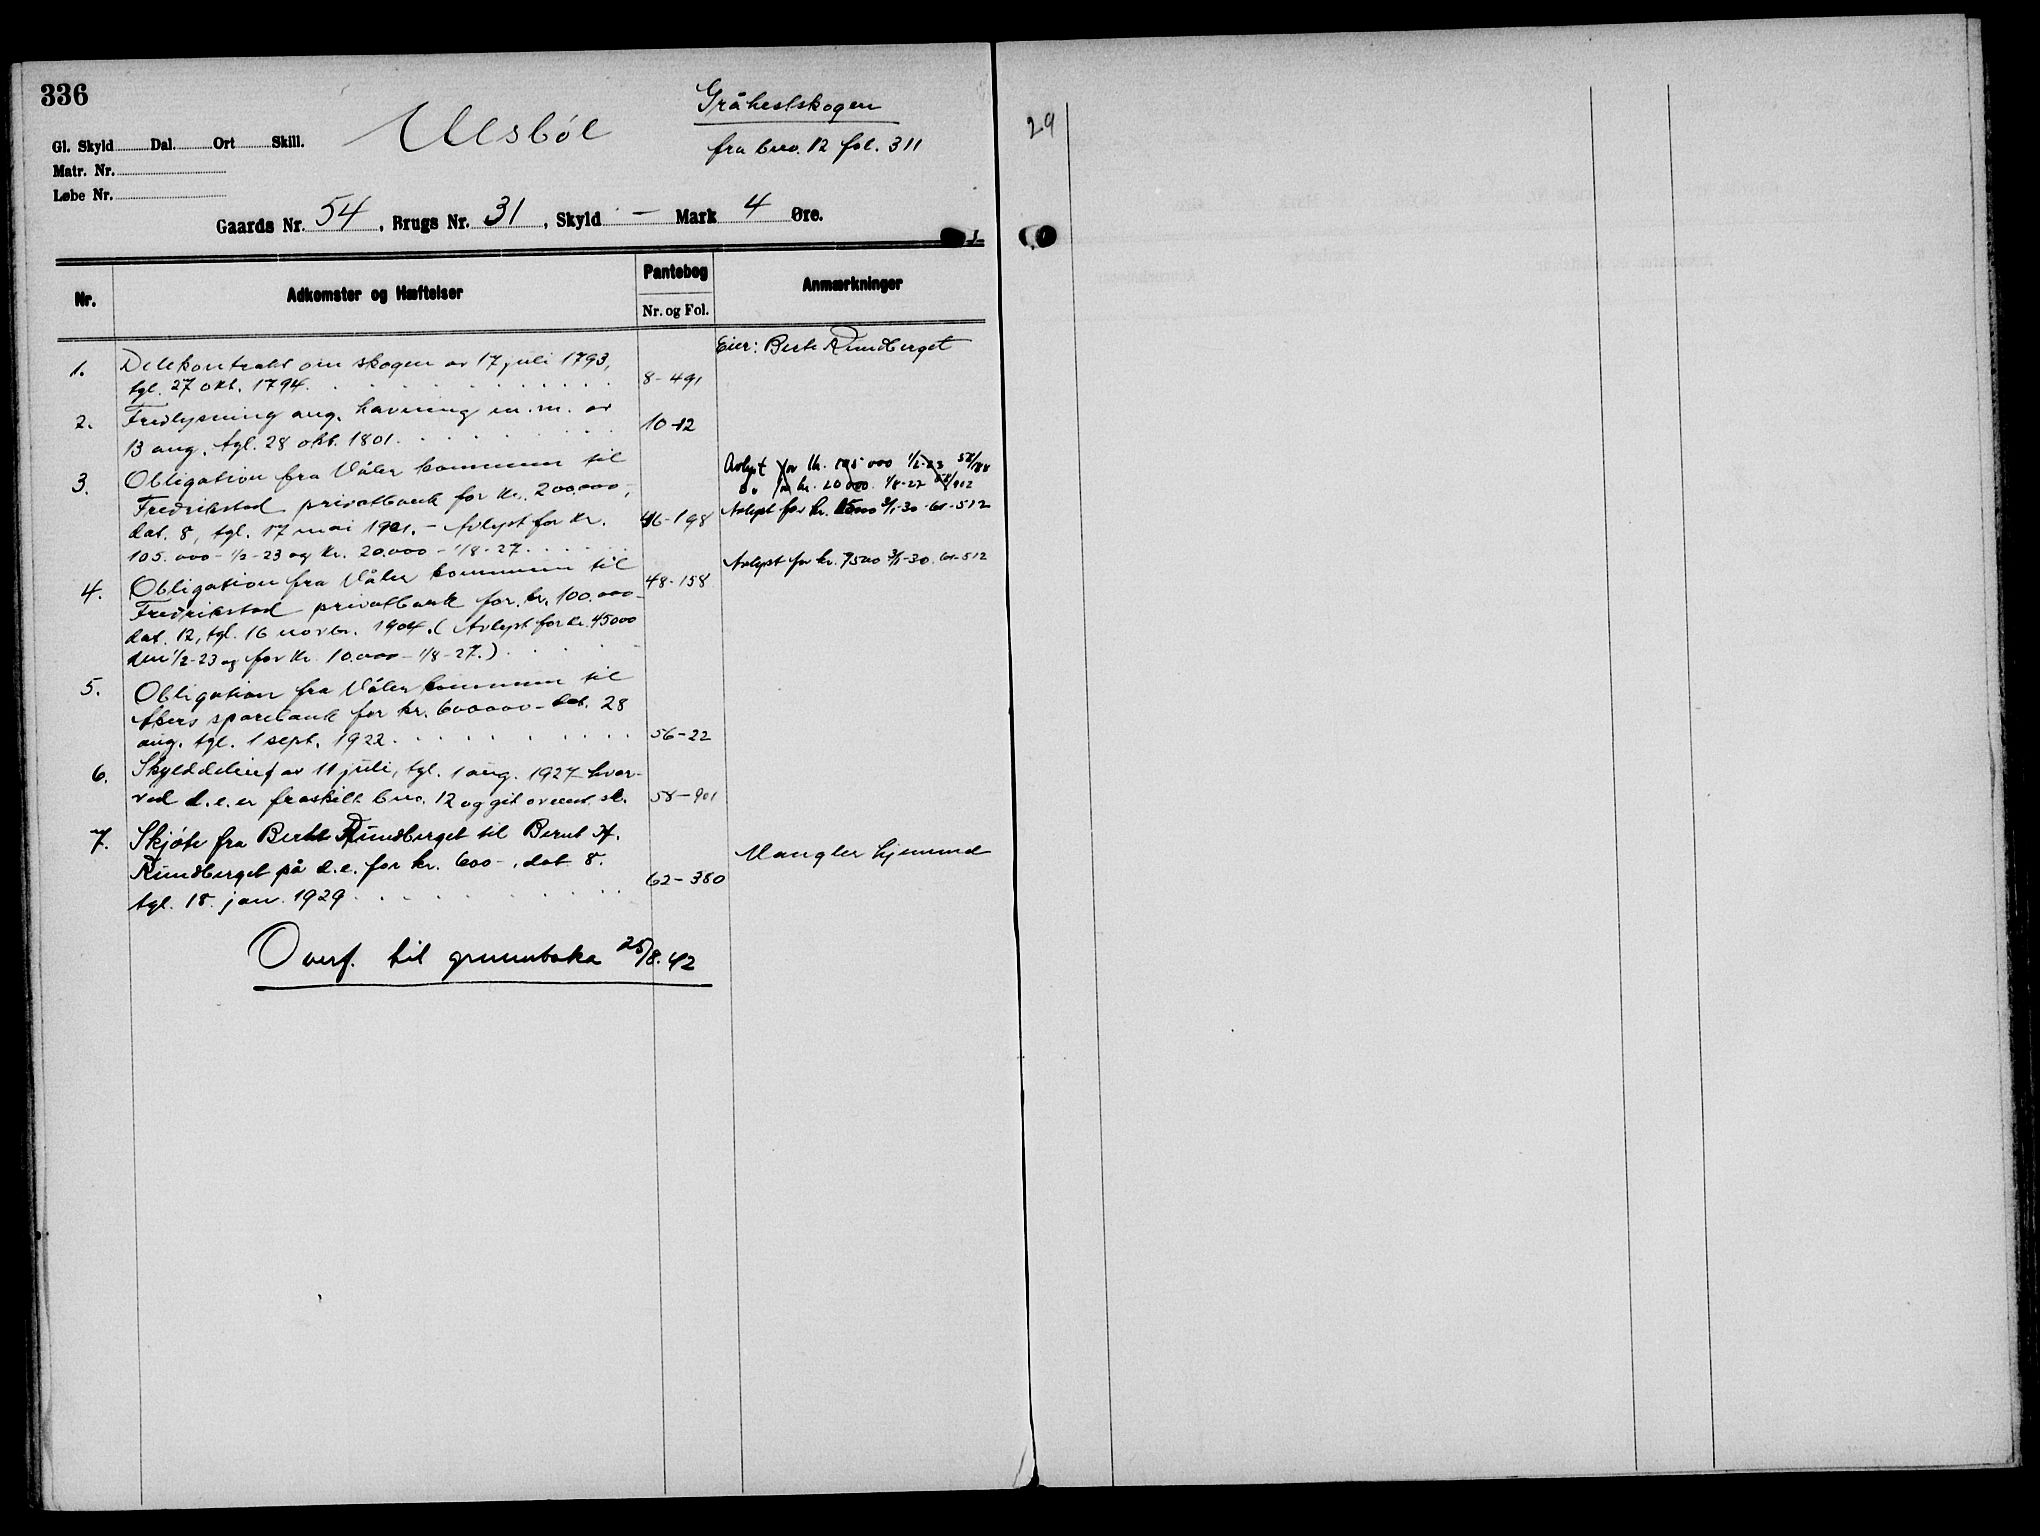 336
Gl. Skyld Dal. Ort Skill.
Matr. Nr.
Løbe Nr.
Ulsbøl
Gråhestskogen
fra brno. 12 fol. 311
Gaards Nr. 54, Brugs Nr. 31, Skyld - Mark 4 Øre.
Nr. Adkomster og Hæftelser Pantebog Nr. og Fol. Anmærkninger
Eier: Berte Rundberget
1. Delekontrakt om skogen av 17 juli 1793,
tgl. 27 okt. 1794. 8-491
2. Fredlysning ang. havning m.m. av
13 aug. tgl. 28 okt. 1801. 10-12
3. Obligation fra Våler kommune til
Fredrikstad privatbank for kr. 200.000,
dat. 8, tgl. 17 mai 1921. - Avlyst for kr. 46-198
105.000 - 1/2-23 og kr. 20.000 - 1/8-27.
Avlyst for kr. 105 000 1/2-23
Do. for kr. 20 000. 1/8-27 58/902
Avlyst for kr. 15000 3/1-30 61-512
4. Obligation fra Våler kommune til 48-158
Fredrikstad privatbank for kr. 100.000-
dat. 12, tgl. 16 novbr. 1904. (Avlyst for kr. 45000
den 1/2-23 og for kr. 10.000 - 1/8-27.)
Avlyst for kr. 7500 3/1-30. 61-512
5. Obligation fra Våler kommune til
Akers sparebank for kr. 600000 - dat. 28
aug. tgl. 1 sept. 1922. 56-22
6. Skylddeling av 11 juli, tgl. 1 aug. 1927 hvor-
ved d.e. er fraskilt brno. 12 og git ovennt. sk. 58-901
7. Skjøte fra Berte Rundberget til Bernt H.
Rundberget på d.e. for kr. 600-, dat 8. 62-380
tgl. 18. jan. 1929.
Mangler hjemmel
Overf. til grunnboka 25/8.42
29